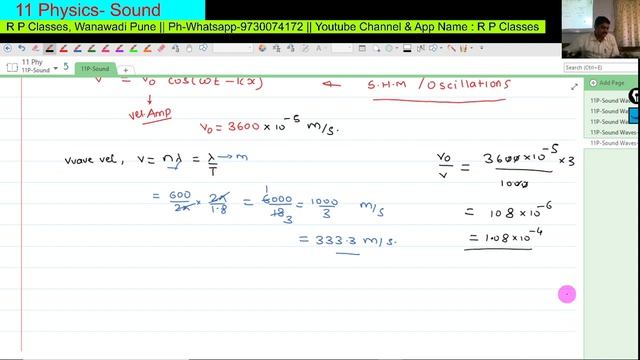 11 Physics- Sound
R P Classes, Wanawadi Pune || Ph-Whatsapp-9730074172 || Youtube Channel & App Name : R P Classes
11 Phy
11P-Sound
5
11P-Sound
Search (Ctrl+E)
Add Page
11P-Sound Wav
11P-Sound Wave
11P-Sound Waves
11P-Sound Waves-
11P-Sound Waves-
v = v₀ cos(ωt - kx) ← S.H.M / Oscillations
↓
Vel. Amp
v₀ = 3600 × 10⁻⁵ m/s.
wave vel, v = nλ = λ/T → m
= 600/2π × 2π/1.8 = 6000/18 = 1000/3 m/s
1
3
= 333.3 m/s.
v₀/v = 3600 × 10⁻⁵ × 3/1000
= 108 × 10⁻⁶
= 1.08 × 10⁻⁴